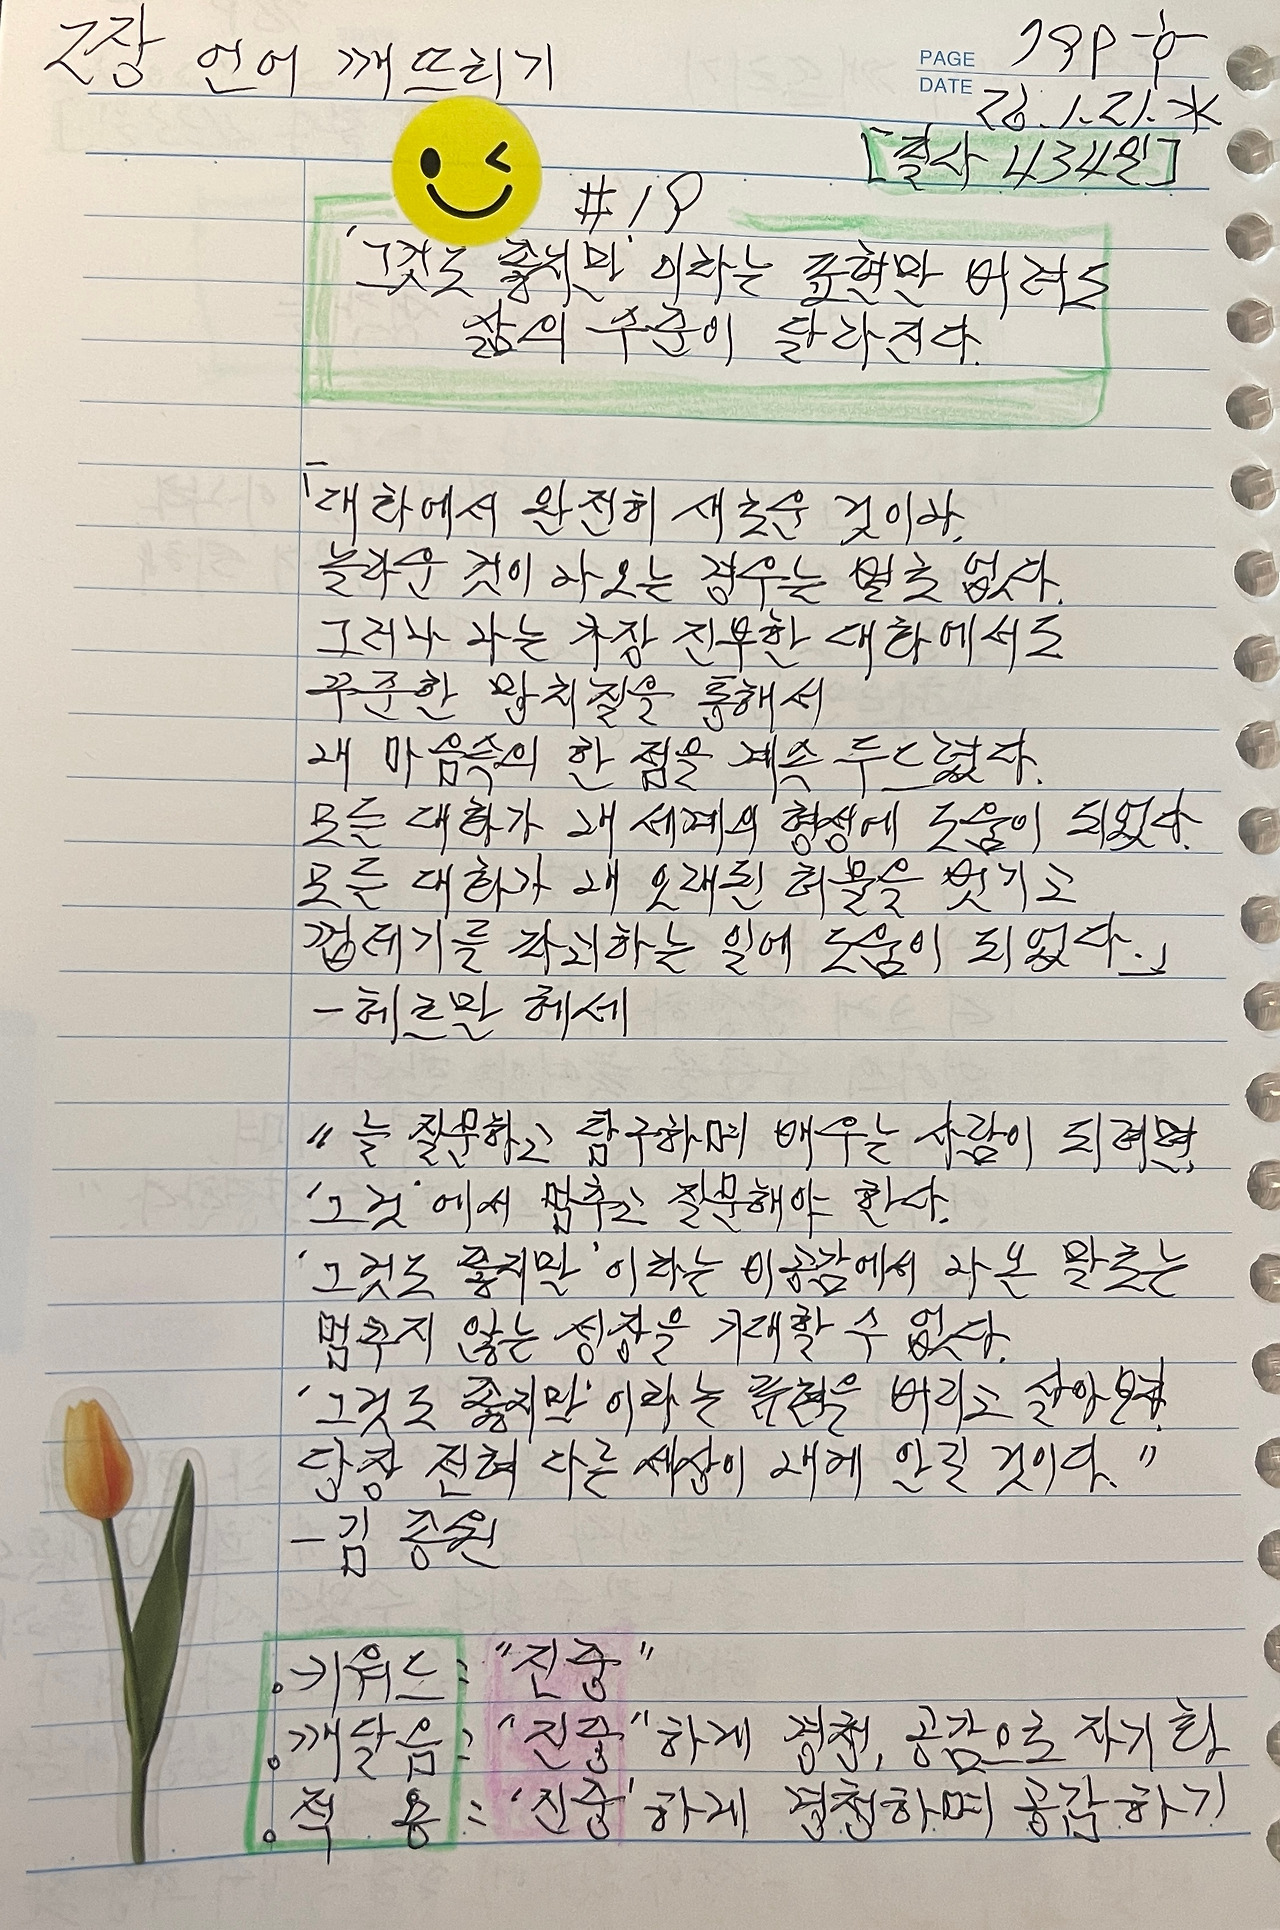 2장 언어 깨뜨리기
PAGE
DATE 26.1.21.水
[필사 434일]
#19
'그것도 좋지만' 이라는 표현만 버려도
삶의 수준이 달라진다.
「대화에서 완전히 새로운 것이나,
놀라운 것이 나오는 경우는 별로 없다.
그러나 나는 가장 진부한 대화에서도
꾸준한 망치질을 통해서
내 마음속의 한 점을 계속 두드렸다.
모든 대화가 내 세계의 형성에 도움이 되었다.
모든 대화가 내 오래된 허물을 벗기고
껍데기를 파괴하는 일에 도움이 되었다.」
-헤르만 헤세
"늘 질문하고 탐구하며 배우는 사람이 되려면,
'그것'에서 멈추고 질문해야 한다.
'그것도 좋지만'이라는 비공감에서 나온 말로는
멈추지 않는 성장을 기대할 수 없다.
'그것도 좋지만'이라는 표현을 버리고 살아보면,
당장 전혀 다른 세상이 내게 안길 것이다."
-김종원
.키워드: "진중"
.깨달음: "진중"하게 경청, 공감으로 자기화
.적 용: "진중"하게 경청하며 공감하기